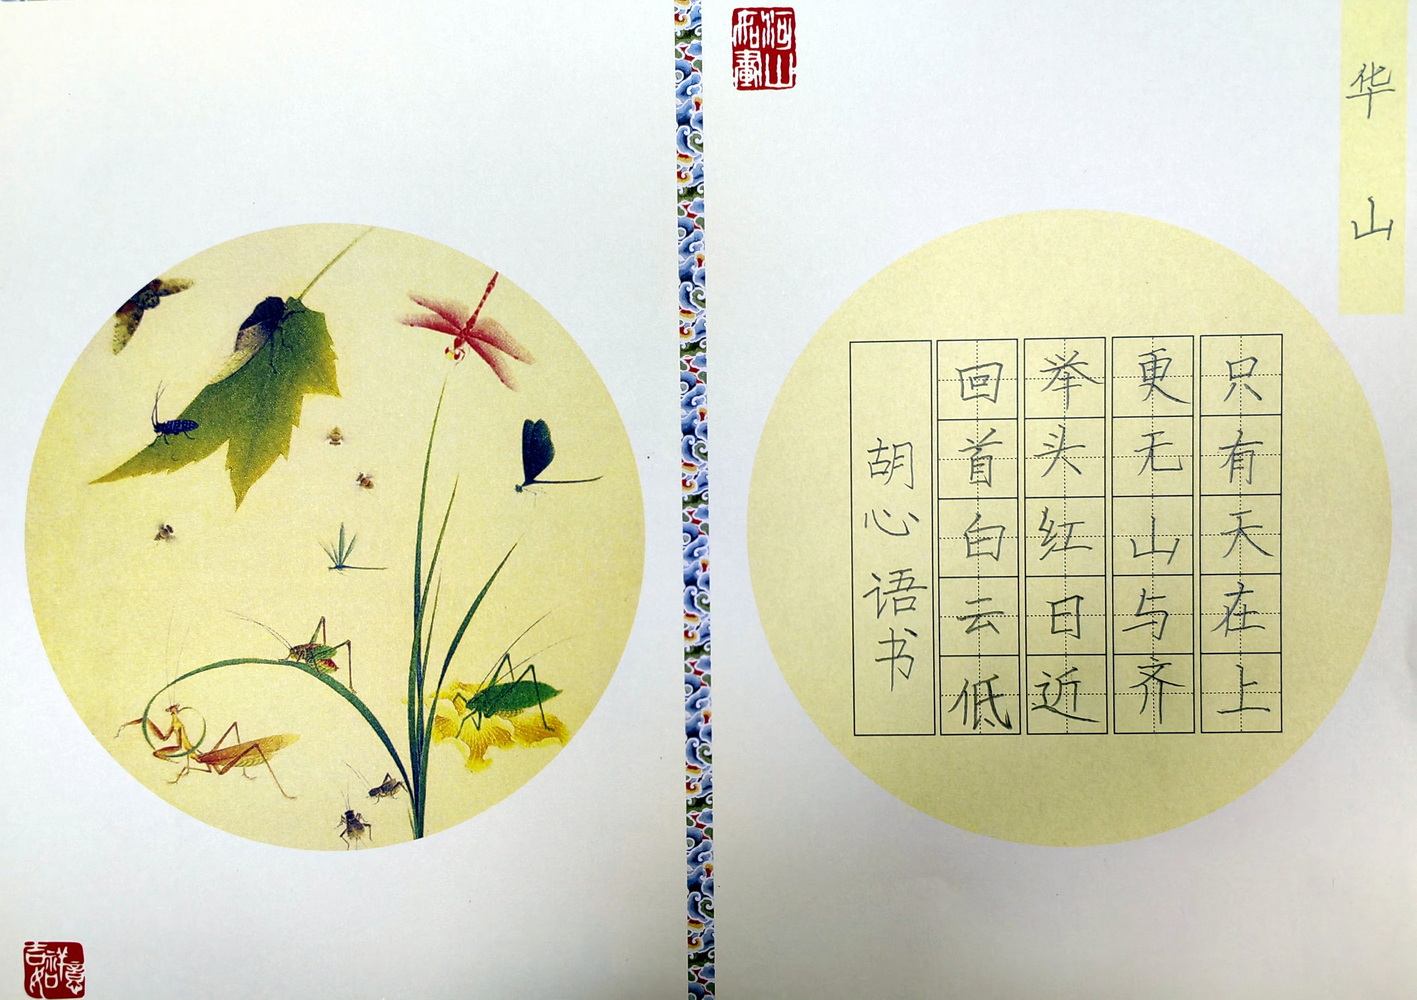 华山
只有天在上
更无山与齐
举头红日近
回首白云低
胡心语书
河山如画
吉祥如意